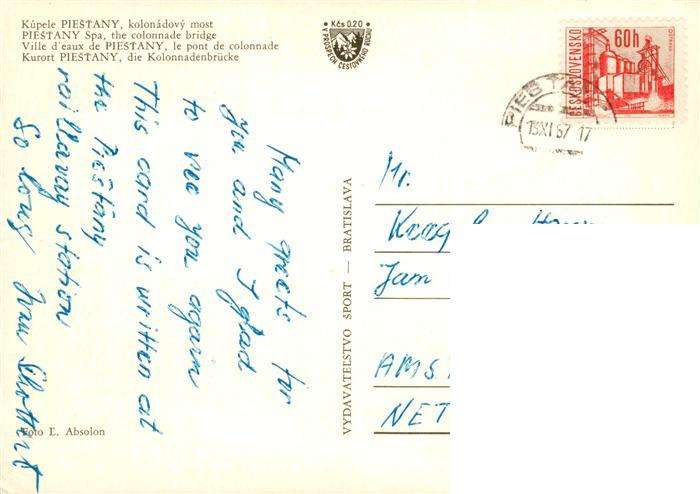 Kúpele PIEŠŤANY, kolonádový most
PIEŠŤANY Spa, the colonnade bridge
Ville d'eaux de PIEŠŤANY, le pont de colonnade
Kurort PIEŠŤANY, die Kolonnadenbrücke
Kčs 0.20
V PROSPECH CESTOVNÉHO RUCHU
60h
ČESKOSLOVENSKO
13 XI 67 17
Many greets for
you and I glad
to see you again
This card is written at
the Piešťany
raillway station
So long Ivan
VYDAVATEĽSTVO ŠPORT — BRATISLAVA
Mr.
Jam
AMS
NET
Foto Ľ. Absolon